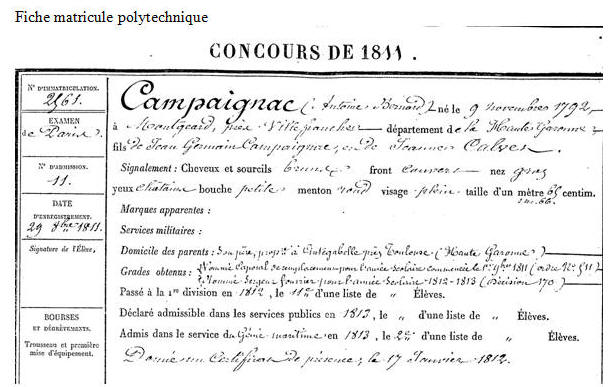 Fiche matricule polytechnique
CONCOURS DE 1811.
N° D'IMMATRICULATION.
2561.
EXAMEN
de Paris.
N° D'ADMISSION.
11.
DATE
D'ENREGISTREMENT.
29 8bre 1811.
Signature de l'Élève.
BOURSES
ET DÉGRÈVEMENTS.
Trousseau et première
mise d'équipement.
Campaignac (Antoine Bernard) né le 9 novembre 1792,
à Montgeard, près Villefranche département de la Haute Garonne
fils de Jean Germain Campaignac, et de Jeanne Calvet
Signalement: Cheveux et sourcils bruns front couvert nez gros
yeux châtains bouche petite menton rond visage plein taille d'un mètre 65 centim.
Marques apparentes:
Services militaires:
Domicile des parents: Son père, propre à Cintegabelle près Toulouse (Haute Garonne)
Grades obtenus: Nommé Caporal de remplacement pour l'année scolaire commencée le 1er 9bre 1811
Nommé Sergent fourrier pour l'année scolaire 1812-1813 (décision 170)
Passé à la 1re division en 1812, le 11me d'une liste de " Élèves.
Déclaré admissible dans les services publics en 1813, le " d'une liste de " Élèves.
Admis dans le service du Génie maritime en 1813, le 2me d'une liste de " Élèves.
Donné un Certificat de présence, le 17 Janvier 1812.